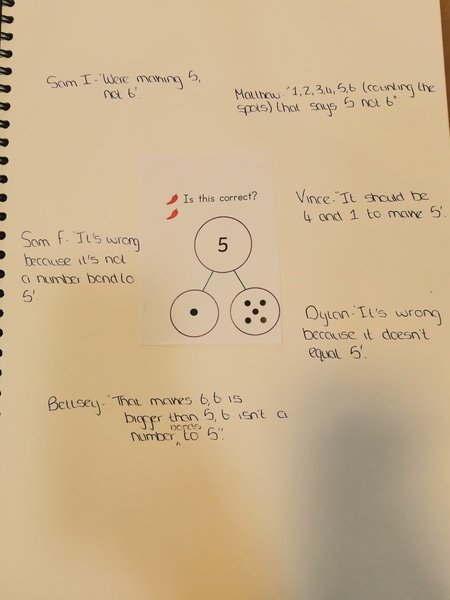 Sam I - 'Were making 5,
not 6'.
Matthew - "1,2,3,4,5,6 (counting the
spots) that says 5 not 6"
Is this correct?
5
Vince - "It should be
4 and 1 to make 5'.
Sam F - 'It's wrong
because it's not
a number bond to
5'.
Dylan - 'It's wrong
because it doesn't
equal 5'.
Bettsey - "That makes 6, 6 is
bigger than 5, 6 isn't a
number bonds to 5".